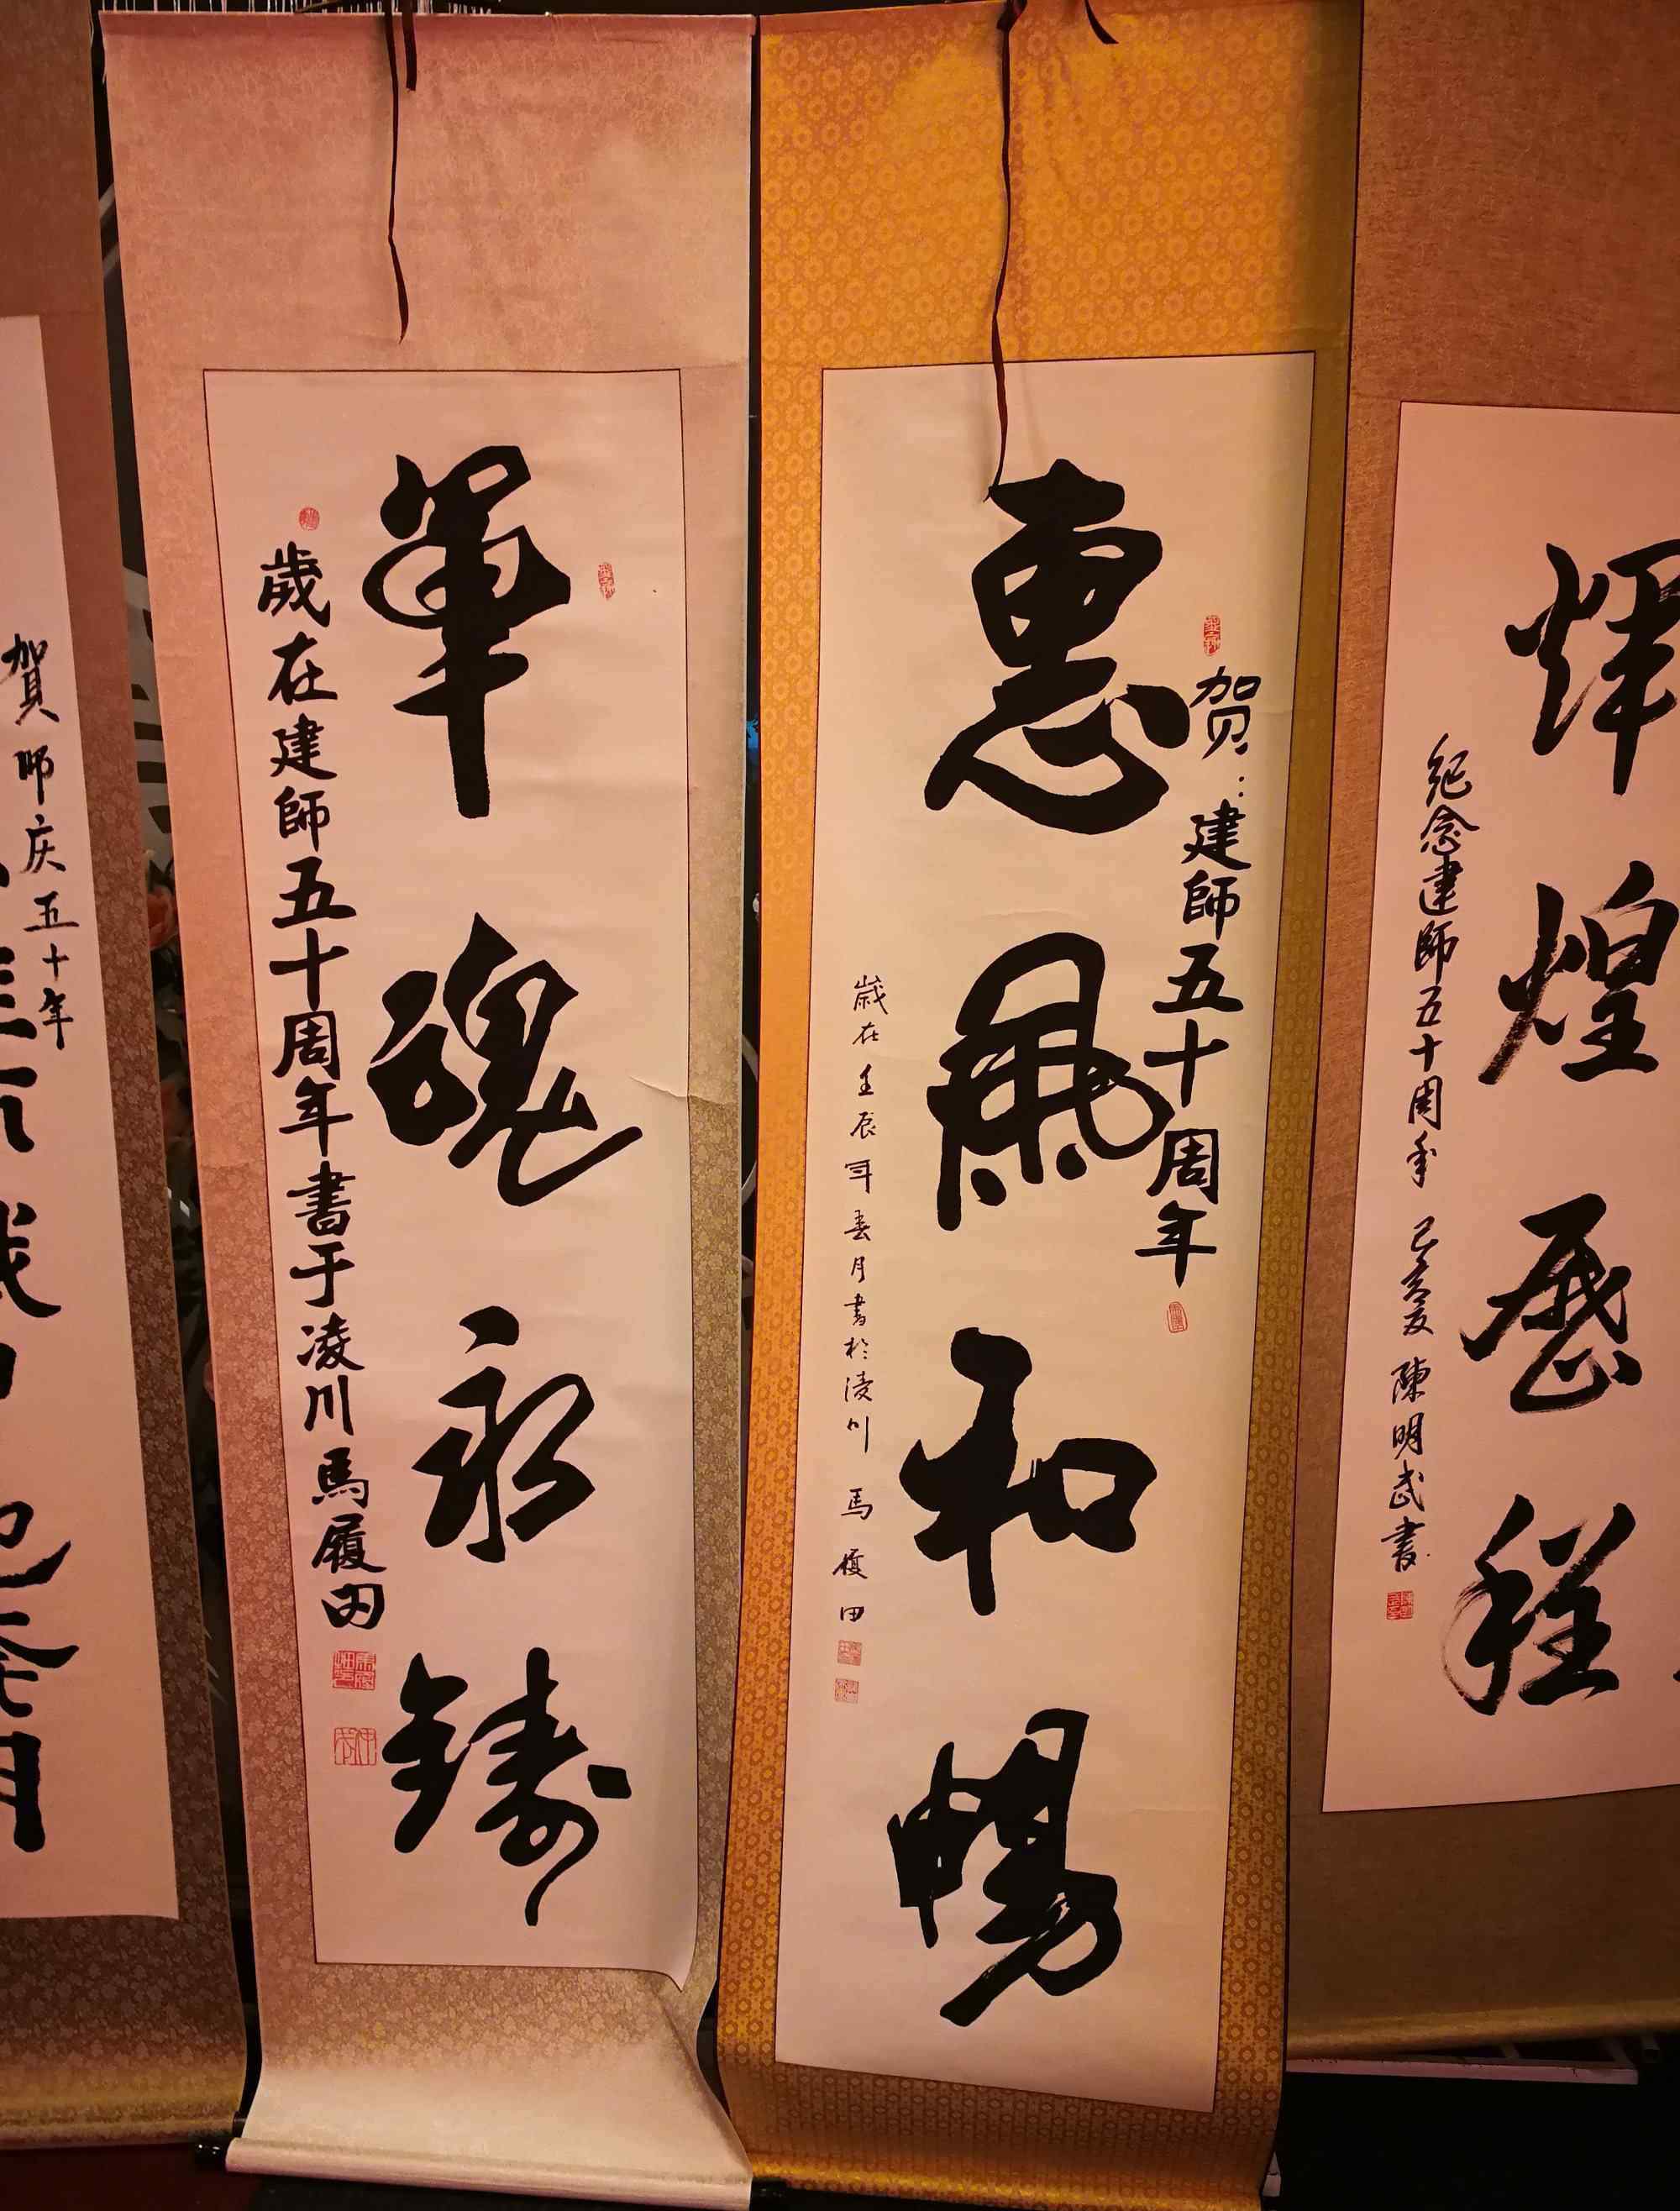 賀師庆五十年
軍魂永鑄
歲在建師五十周年書于凌川馬履田
贺：建師五十周年
惠風和暢
歲在壬辰年春月書於凌川 馬履田
輝煌歷程
紀念建師五十周年 己亥夏 陳明武書